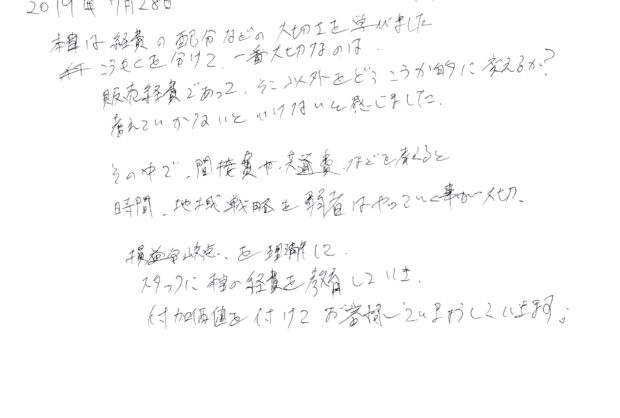 2019年 7月28日
本日は経費の配分などの大切さを学びました
こうもくを分けて、一番大切なのは、
販売経費であって、そこ以外をどう こうか的に変えるか?
考えていかないといけないと感じました。
その中で、間接費や、共通費、などを考えると
時間、地域戦略を弱者はやっていく事が大切、
損益分岐点、を理解して、
スタッフに の経費を教育していき、
付加価値を付けて お客様に していきます。